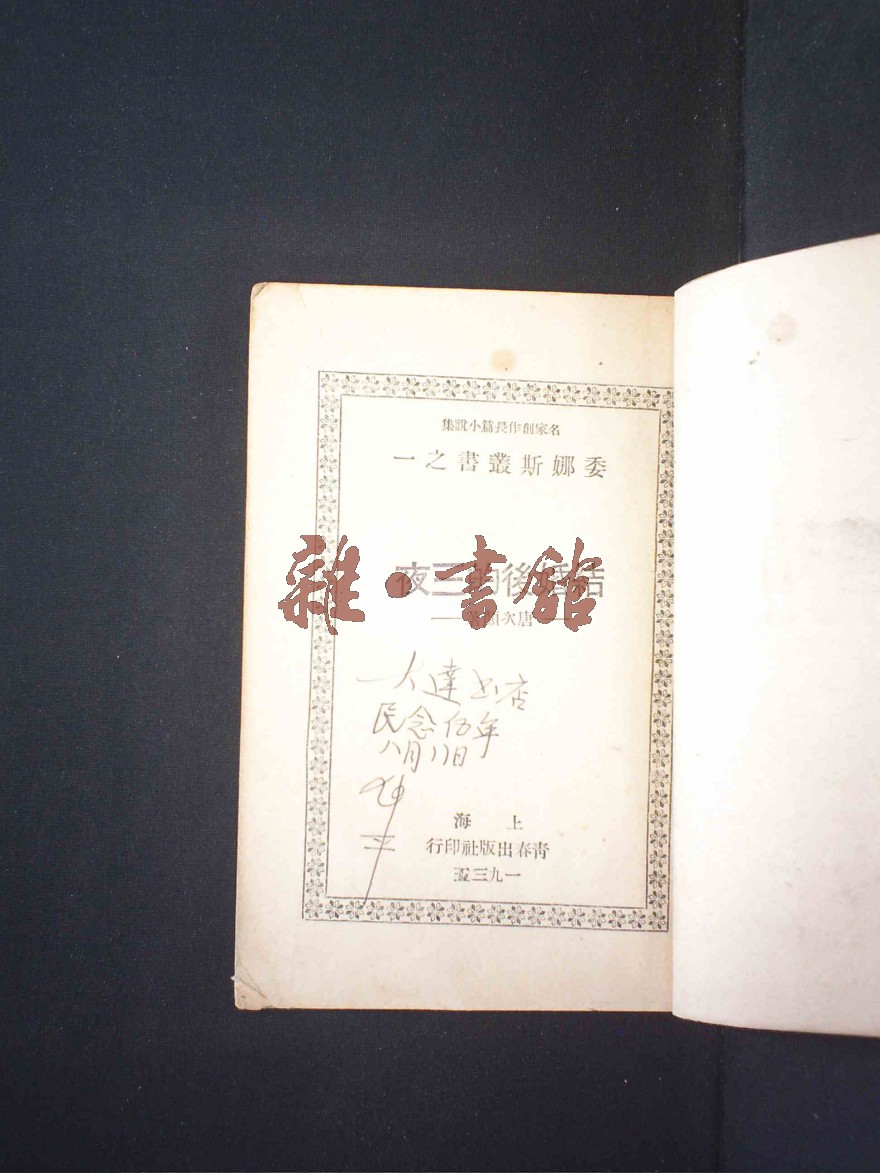 名家創作長篇小說集
委娜斯叢書之一
結婚後的三夜
雜·書館
唐次
大達书店
民念伍年
八月 日
上海
青春出版社印行
一九三五